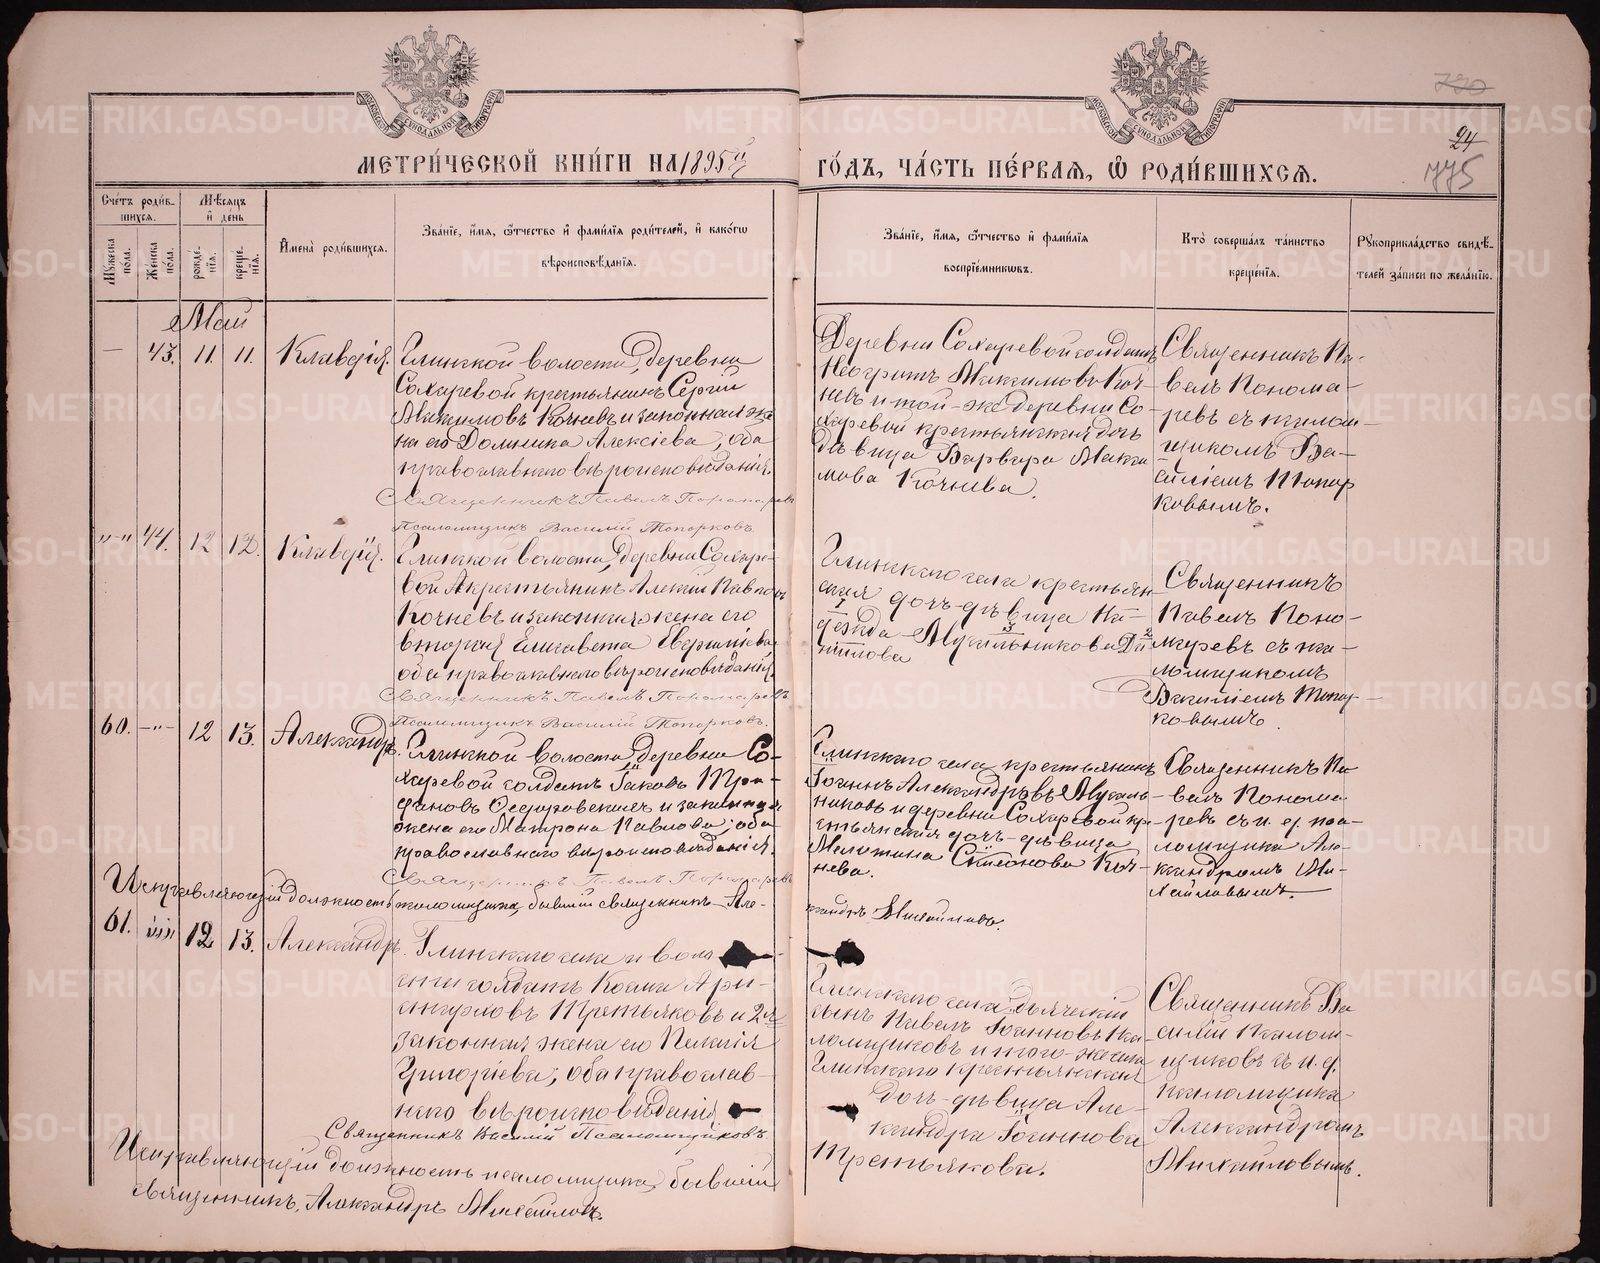 790
24
775
МЕТРИ́ЧЕСКОЙ КНИ́ГИ НА 1895й
ГО́ДЪ, ЧА́СТЬ ПЕ́РВАѦ, Ѡ҆ РОДИ́ВШИХСѦ.
Сче́тъ роди́в-
шихсѧ.
Мѣ́сѧцъ
и҆ де́нь
Мꙋ́жеска по́ла.
Же́нска по́ла.
рожде́-
нїѧ.
креще́-
нїѧ.
И҆мена̀ роди́вшихсѧ.
Зва́нїе, и҆́мѧ, ѻ҆́тчество и҆ фамили́ѧ роди́телей, и҆ како́гѡ
вѣроисповѣ́данїѧ.
Зва́нїе, и҆́мѧ, ѻ҆́тчество и҆ фами́лїѧ
воспрїе́мникѡвъ.
Кто̀ соверша́лъ та́инство
креще́нїѧ.
Рꙋкоприкла́дство свидѣ́-
телей за́писи по жела́нїю.
Май
— 43. 11. 11. Клавдія.
Глинской волости, деревни
Сохаревой крестьянинъ Сергій
Максимовъ Кочневъ и законная же-
на его Домника Алексіева, оба
православнаго вѣроисповѣданія.
Священникъ Павелъ Пономаревъ
Псаломщикъ Василій Топорковъ.
Деревни Сохаревой солдатъ
Максимовъ Коч-
невъ и той-же деревни Со-
харевой крестьянская дочь
дѣвица Варвара Макси
мова Кочнева.
Священникъ Па-
велъ Понома-
ревъ съ псалом-
щикомъ Ва-
силіемъ Топор
ковымъ.
"-" 44. 12 12. Клавдія.
Глинской волости, деревни Сохаре-
вой крестьянинъ Алексій Павловъ
Кочневъ и законная жена его
вторая Елисавета
оба православнаго вѣроисповѣданія.
Священникъ Павелъ Пономаревъ
Псаломщикъ Василій Топорковъ.
Глинскаго села крестьян
ская дочь-дѣвица На-
1 3 2
дежда Мукальникова Да
ніилова
Священникъ
Павелъ Поно-
маревъ съ пса-
ломщикомъ
Василіемъ Топор-
ковымъ.
60. -"- 12 13. Александръ.
Глинской волости, деревни Со-
харевой солдатъ Іаковъ Три-
фановъ и законная
жена его Матрона Павлова; оба
православнаго вѣроисповѣданія.
Священникъ Павелъ Пономаревъ
Исправляющій должность псаломщика, бывшій священникъ Але-
ксандръ Михайловъ.
Глинскаго села крестьянинъ
Іоаннъ Александровъ Мукаль-
никовъ и деревни Сохаревой кре-
стьянская дочь-дѣвица
Симеонова Коч-
нева.
Священникъ Па-
велъ Понома-
ревъ съ и. д. пса-
ломщика Але-
ксандромъ Ми-
хайловымъ.
61. 12 13. Александръ.
Глинскаго села и воло
сти солдатъ Косма Ари-
старховъ Третьяковъ и 2я
законная жена его Пелагія
Григоріева; оба православ-
наго вѣроисповѣданія
Священникъ Василій Псаломщиковъ
Исправляющій должность псаломщика, бывшій
священникъ, Александръ Михайловъ.
Глинскаго села дьяческій
сынъ Павелъ Іоанновъ Пса
ломщиковъ и того-же села
Глинскаго крестьянская
дочь-дѣвица Але-
ксандра Іоаннова
Третьякова.
Священникъ Ва
силій Псалом-
щиковъ съ и. д.
псаломщика
Александромъ
Михайловымъ.
METRIKI.GASO-URAL.RU